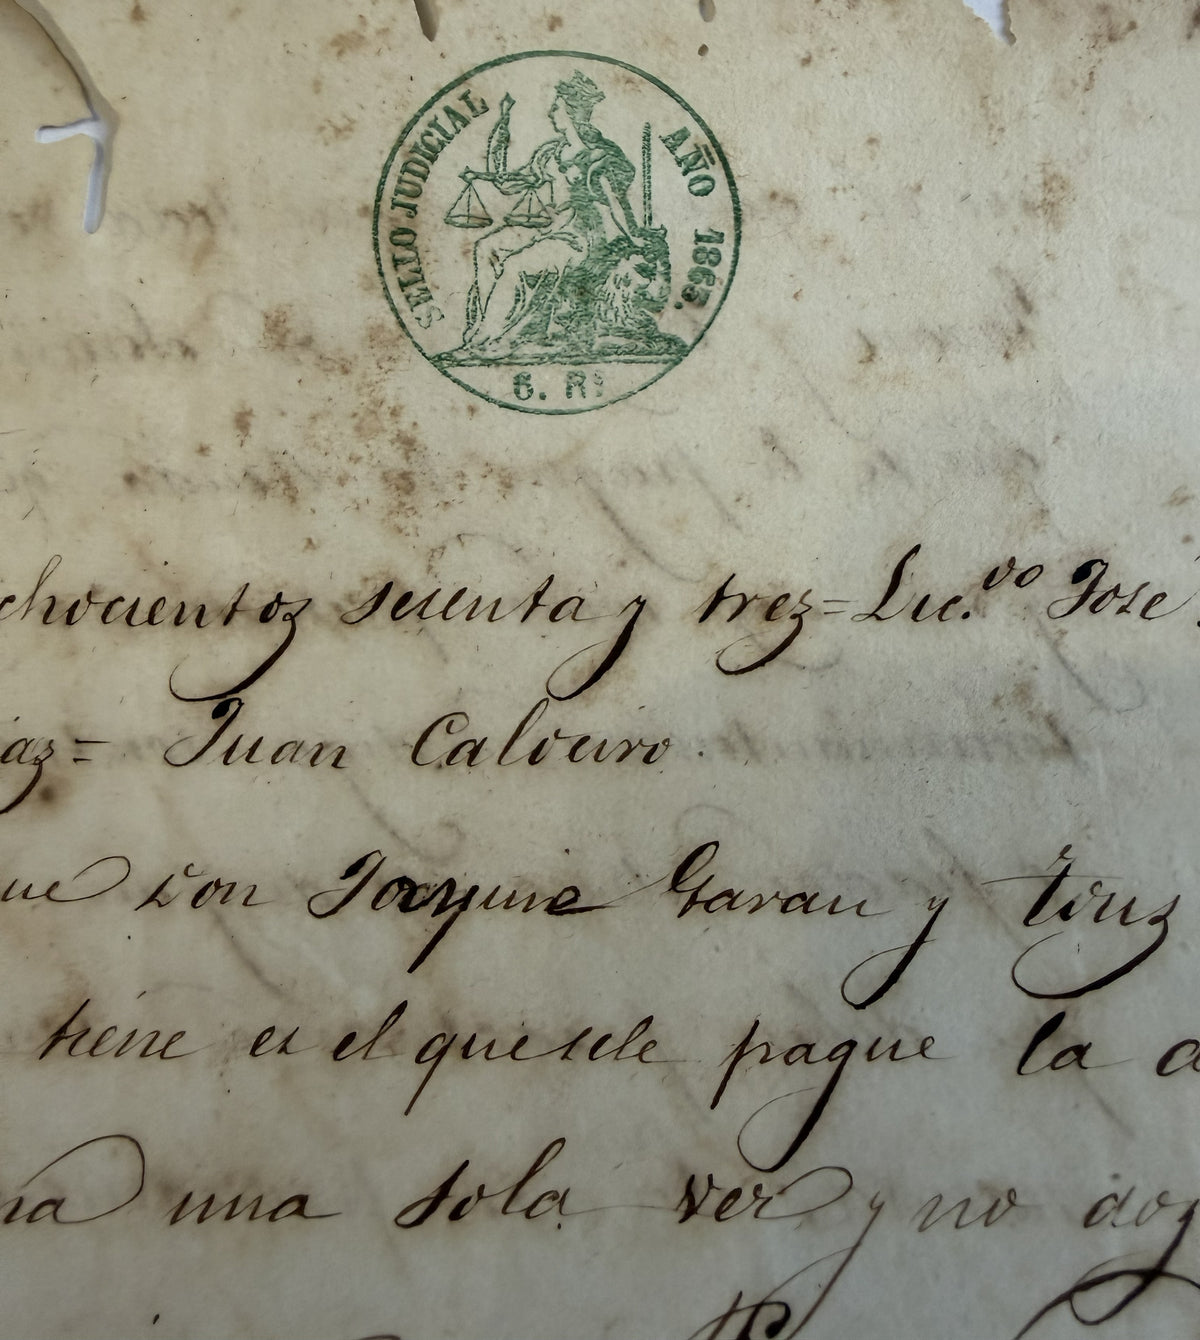 SELLO JUDICIAL AÑO 1863.
6. Rs
chocientos sesenta y trez = Lic.do José
az = Juan Caldeiro.
ue don Joaquine Garau y
tiene es el que sele pague la
na una sola vez y no dos